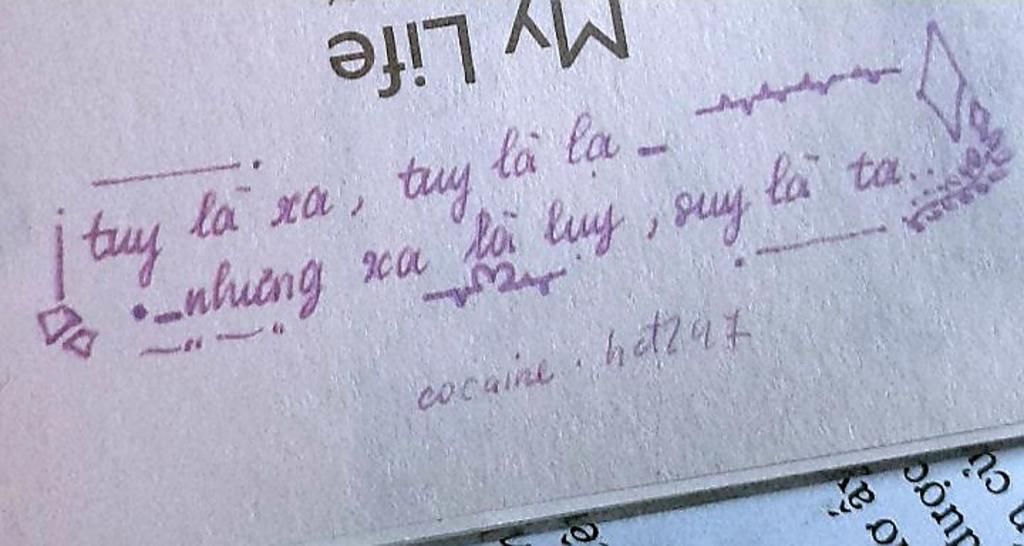 My Life
tuy là xa, tuy là lạ -
- nhưng xa là luỵ, suy là ta...
cocaine. hdt247